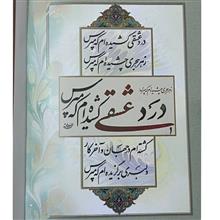 درد عشقی کشیده ام که مپرس
زهر هجری چشیده ام که مپرس
زهر هجری چشیده ام که مپرس
درد عشقی کشیده ام که مپرس
گشته ام در جهان و آخر کار
دلبری برگزیده ام که مپرس